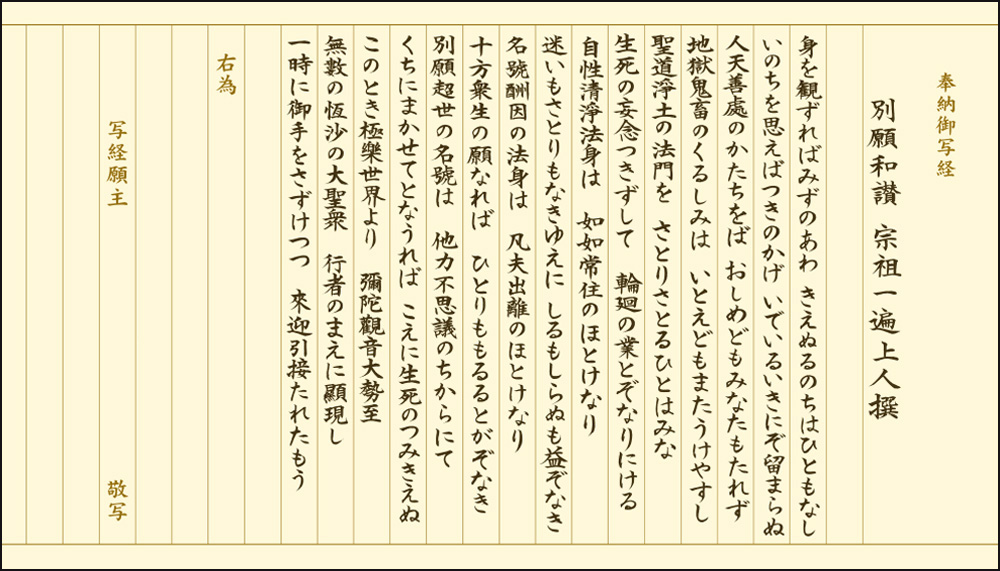 奉納御写経
別願和讃 宗祖一遍上人撰
身を観ずればみずのあわ きえぬるのちはひともなし
いのちを思えばつきのかげ いでいるいきにぞ留まらぬ
人天善處のかたちをば おしめどもみなたもたれず
地獄鬼畜のくるしみは いとえどもまたうけやすし
聖道淨土の法門を さとりさとるひとはみな
生死の妄念つきずして 輪廻の業とぞなりにける
自性清淨法身は 如如常住のほとけなり
迷いもさとりもなきゆえに しるもしらぬも益ぞなき
名號酬因の法身は 凡夫出離のほとけなり
十方衆生の願なれば ひとりももるるとがぞなき
別願超世の名號は 他力不思議のちからにて
くちにまかせてとなうれば こえに生死のつみきえぬ
このとき極樂世界より 彌陀觀音大勢至
無數の恆沙の大聖衆 行者のまえに顯現し
一時に御手をさずけつつ 來迎引接たれたもう
右為
写経願主 敬写